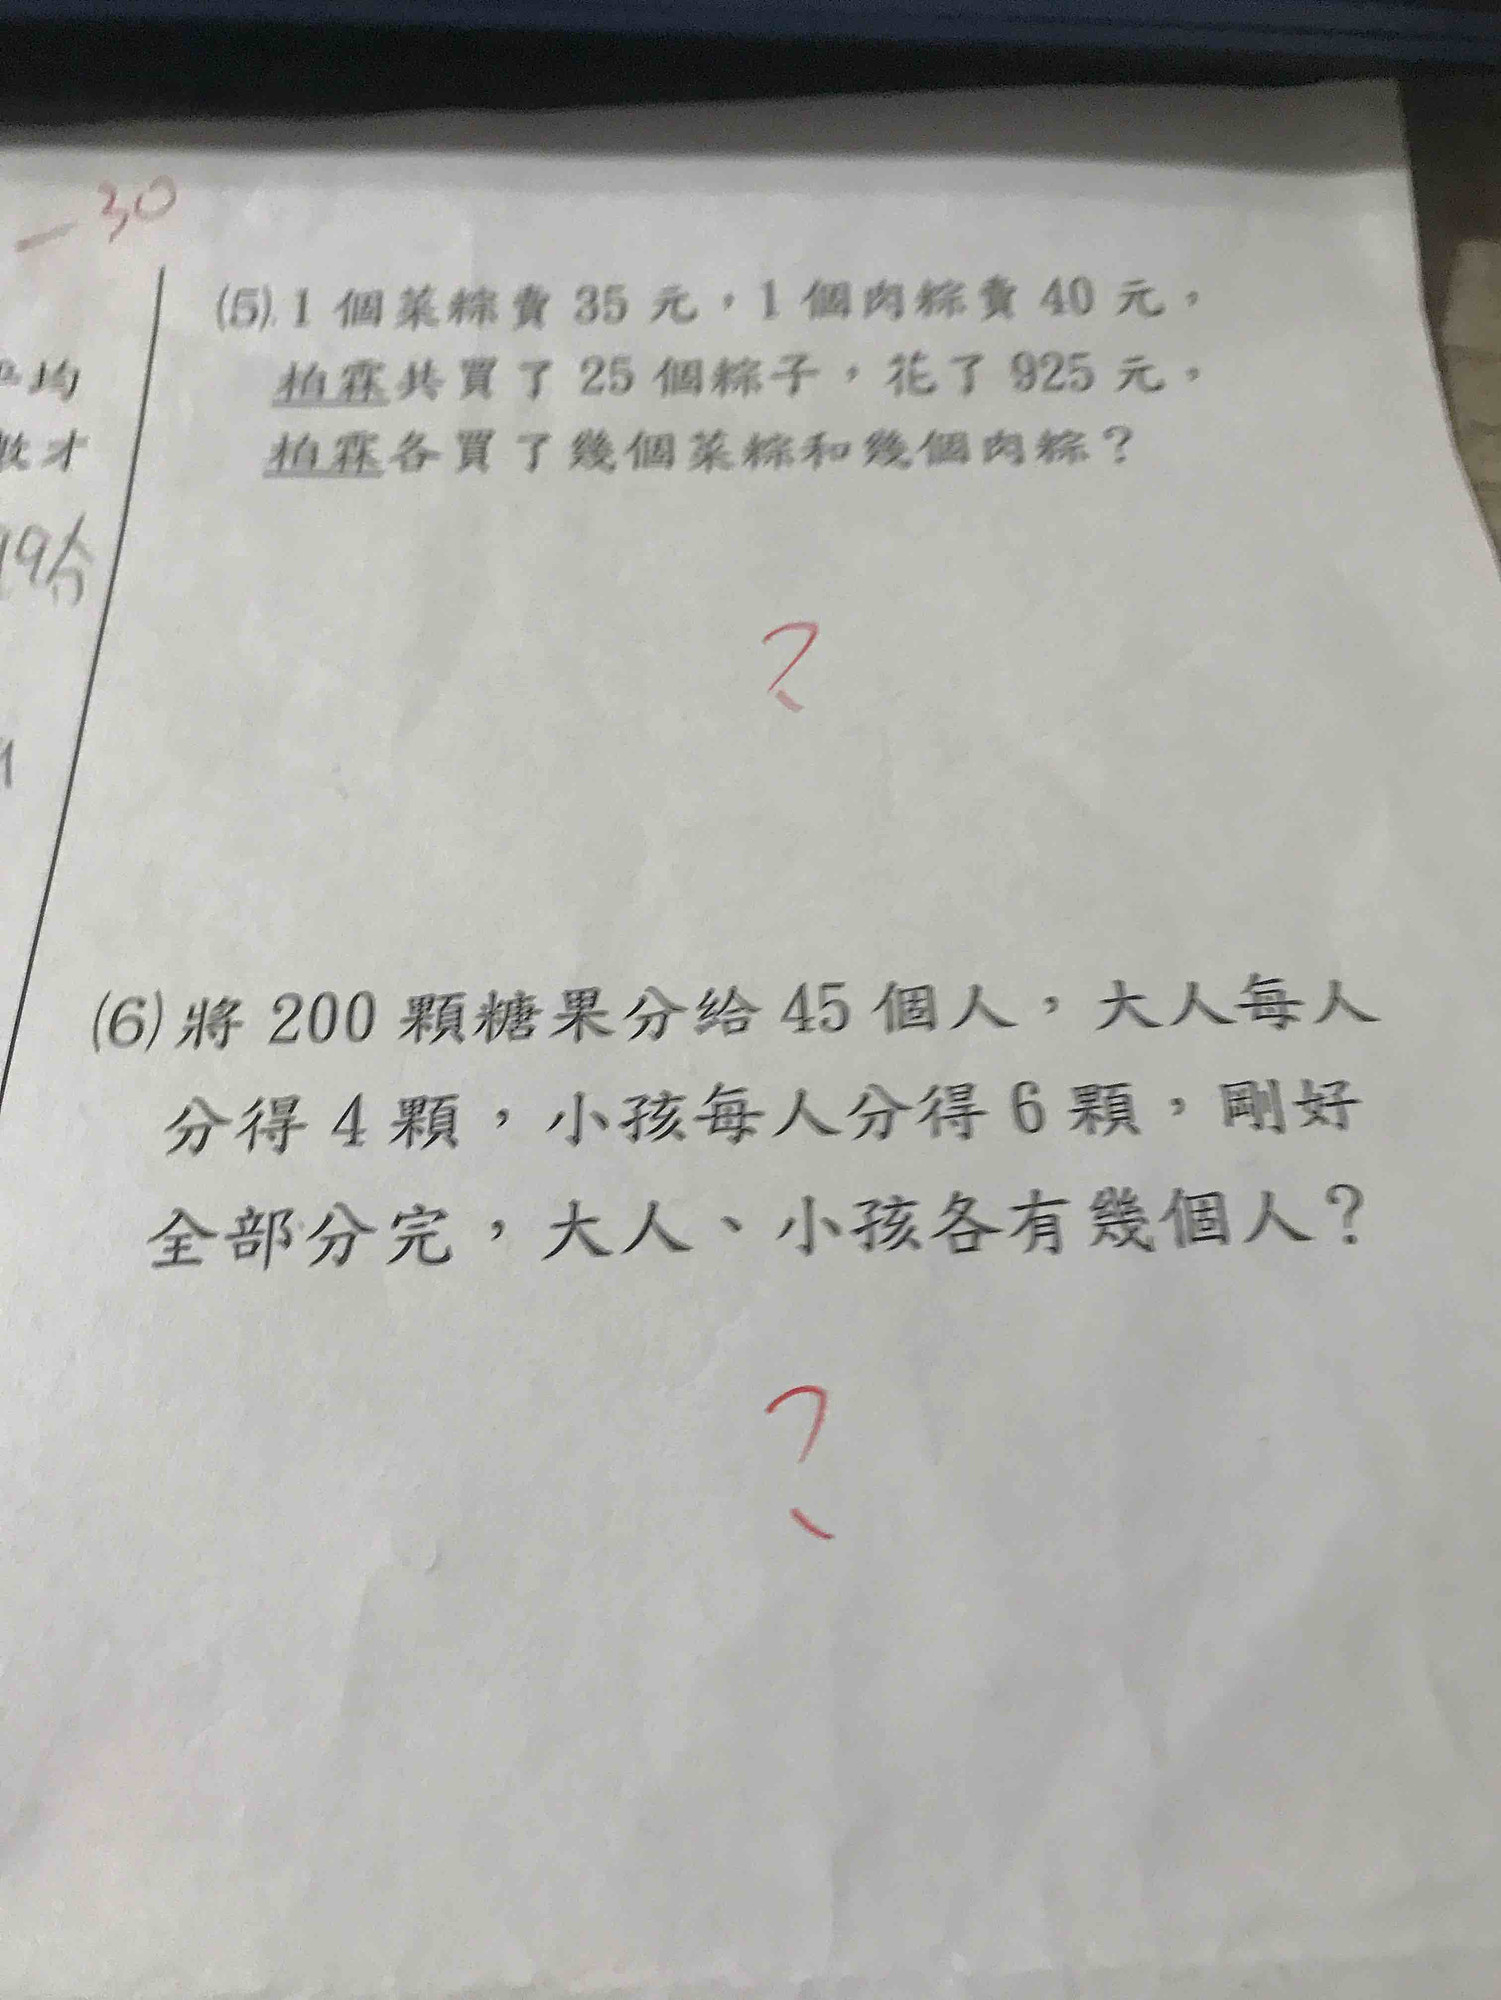 -30
均
才
19分
1
(5).1個菜粽賣35元，1個肉粽賣40元，
柏霖共買了25個粽子，花了925元，
柏霖各買了幾個菜粽和幾個肉粽？
?
(6)將200顆糖果分給45個人，大人每人
分得4顆，小孩每人分得6顆，剛好
全部分完，大人、小孩各有幾個人？
?